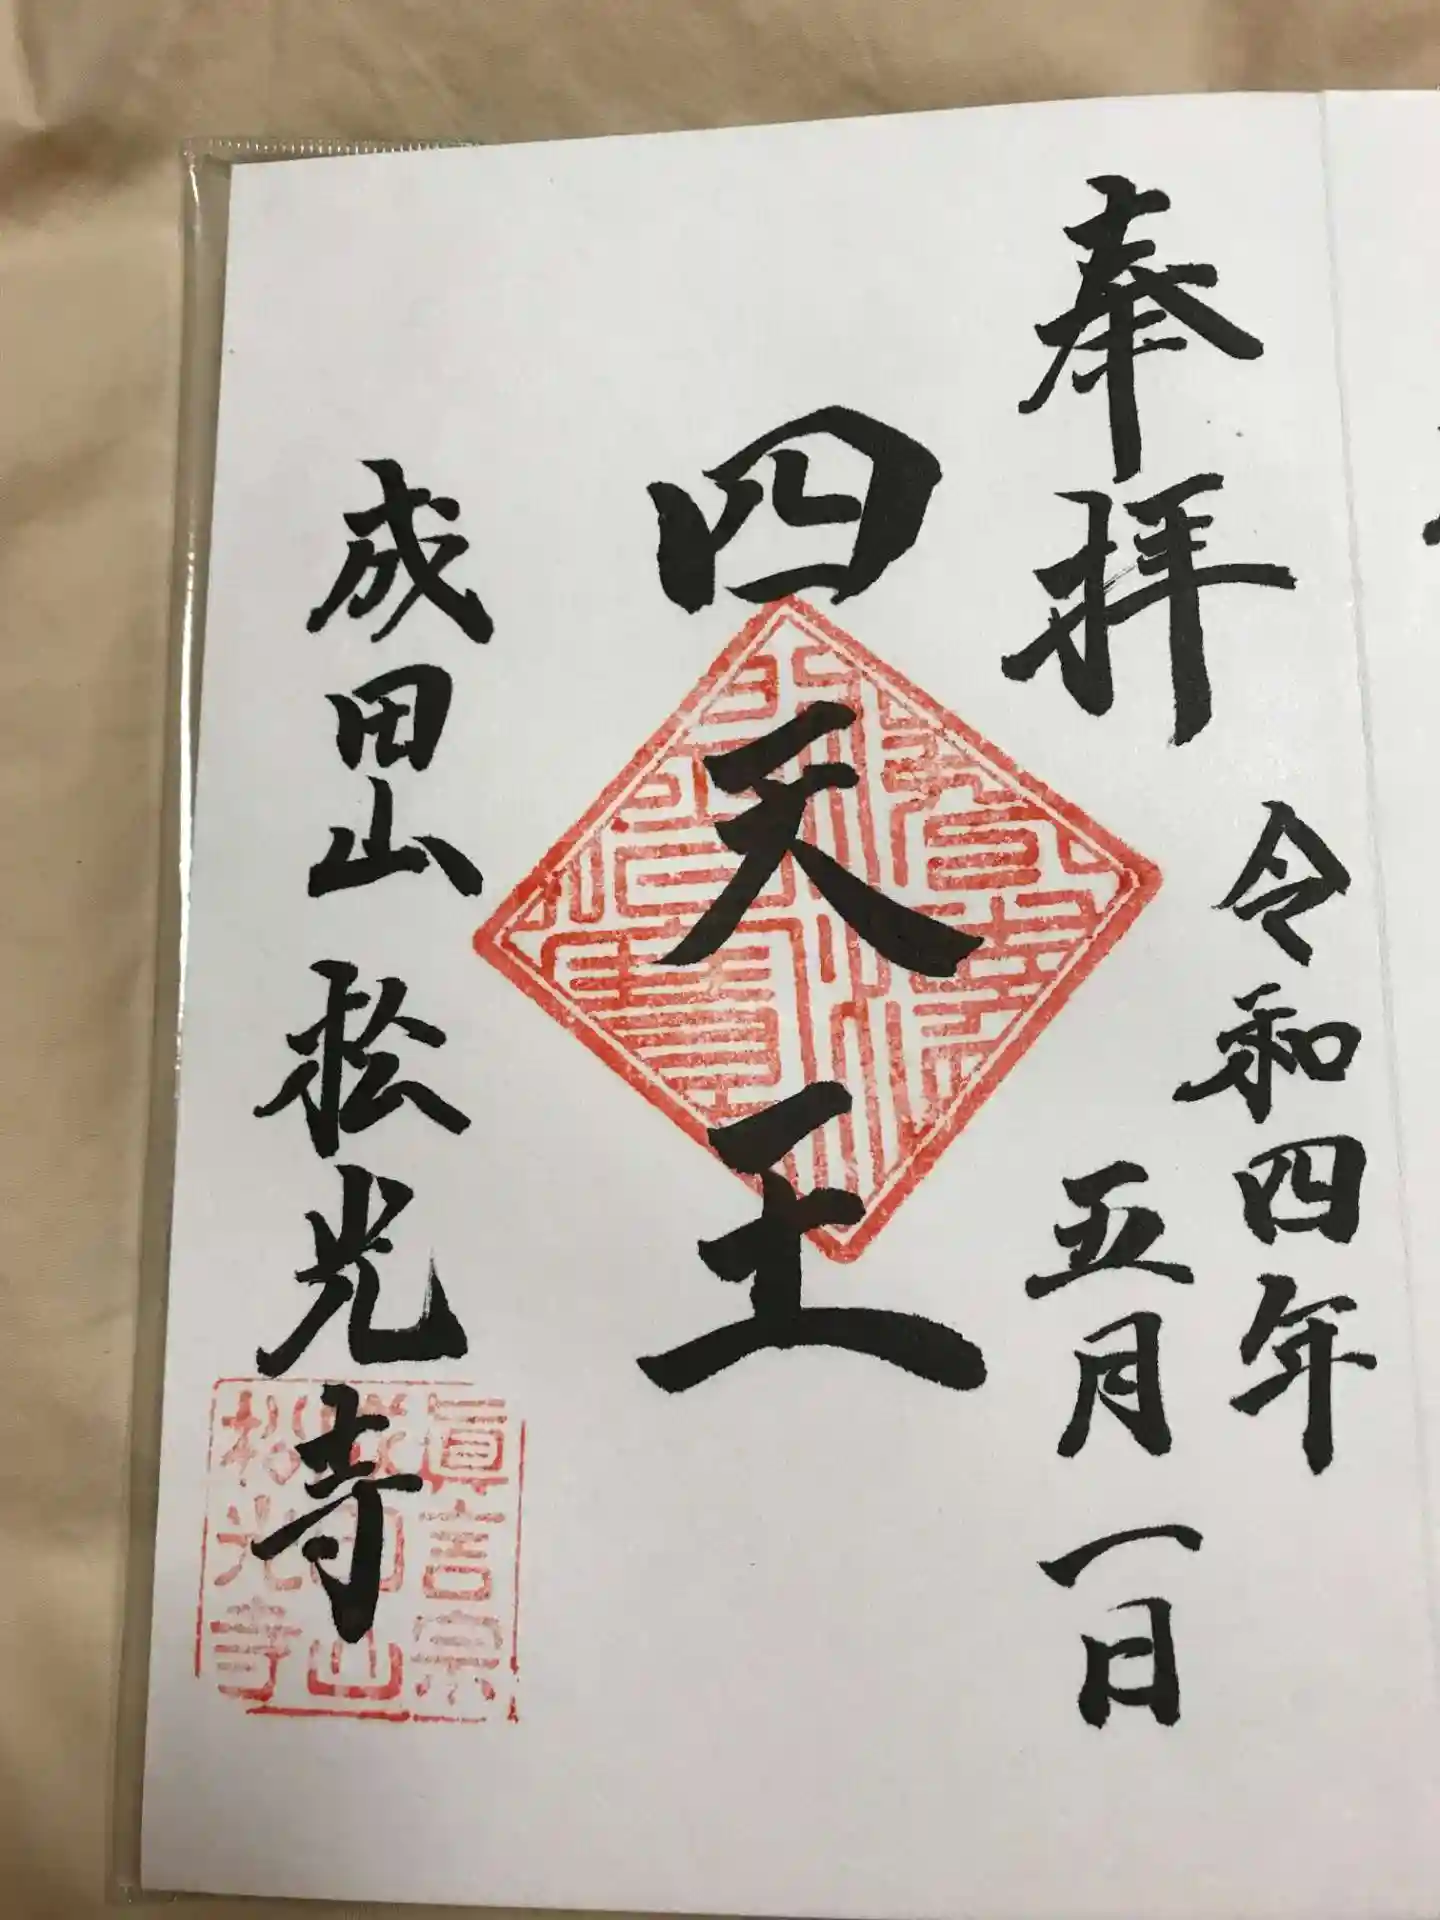 奉拝
令和四年
五月一日
四天王
成田山松光寺
眞言宗
成田山
松光寺